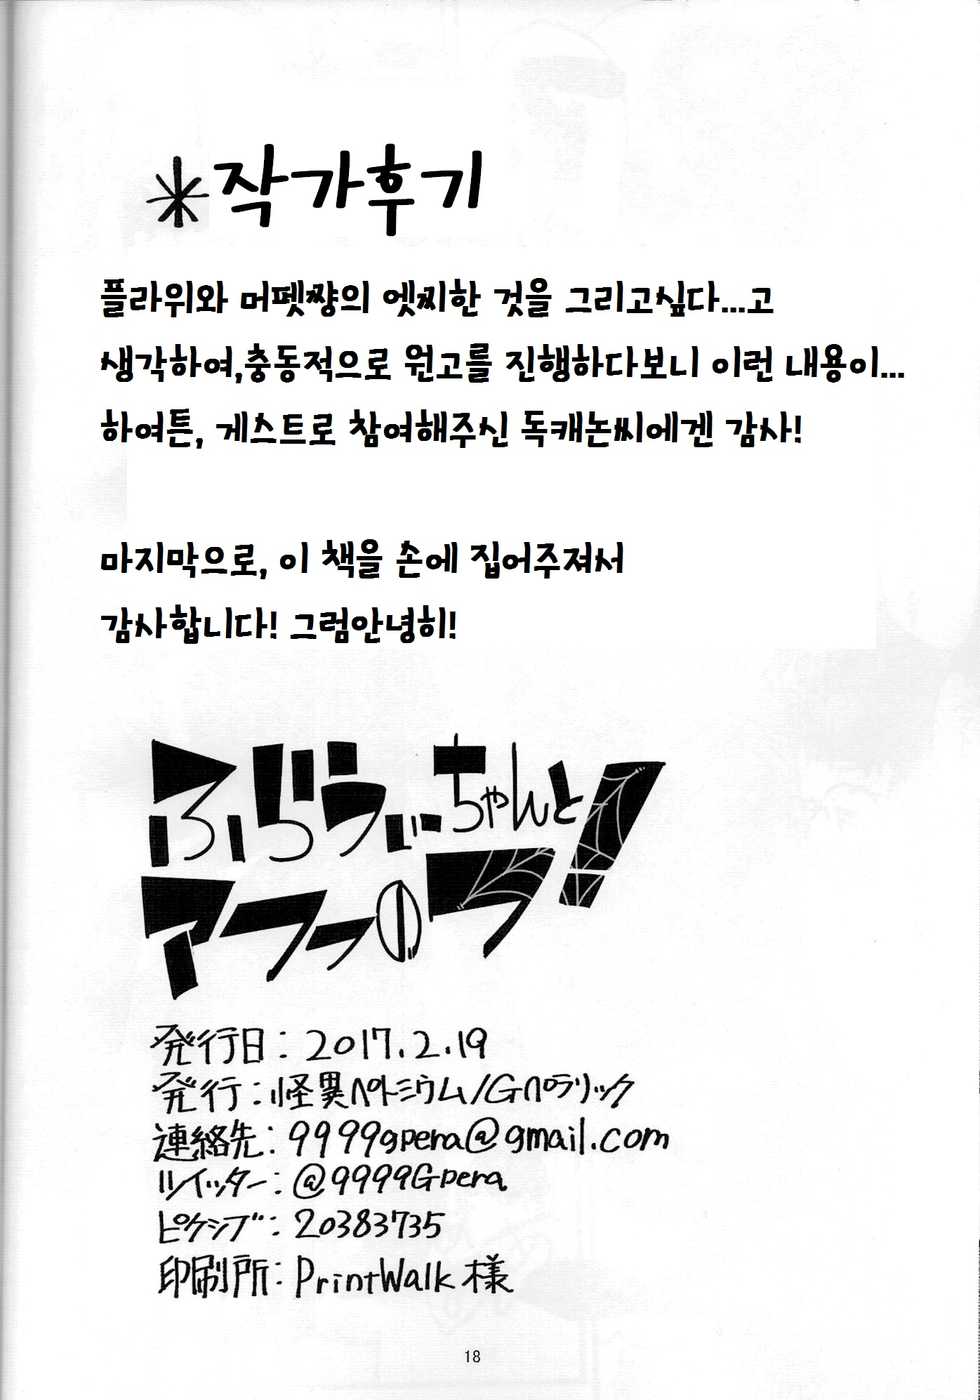 *작가후기
플라위와 머펫쨩의 엣찌한 것을 그리고싶다...고
생각하여,충동적으로 원고를 진행하다보니 이런 내용이...
하여튼, 게스트로 참여해주신 독캐논씨에겐 감사!
마지막으로, 이 책을 손에 집어주져서
감사합니다! 그럼안녕히!
ふらうぃーちゃんと
アフ〜のラ!
発行日:2017.2.19
発行:怪異ペトミウム/Gペラリック
連絡先:9999gpera@gmail.com
ツイッター:@9999Gpera
ピクシブ:20383735
印刷所:PrintWalk様
18